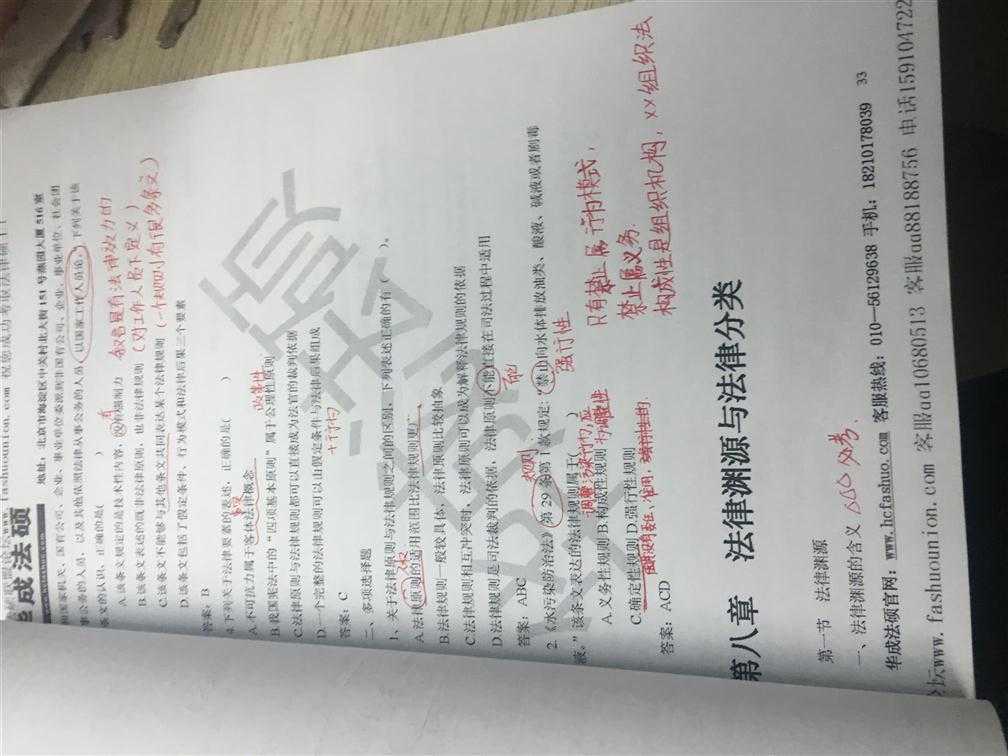 fashuounion.com 祝您成功考取法律硕士
华成法硕
地址:北京市海淀区中关村北大街 151 号燕园大厦 516 室
和国家机关、国有公司、企业、事业单位委派到非国有公司、企业、事业单位、社会团
事公务的人员,以及其他依照法律从事公务的人员,以国家工作人员论。下列关于该
条文的认识,正确的是( )
A.该条文规定的是技术性内容,没有强制力
有
叙写是有法律效力的
B.该条文表述的既非法律原则,也非法律规则
(对工作人员下定义)
C.该条文不能够与其他条文共同表达某个法律规则
(一个规则有很多条文)
D.该条文包括了假定条件、行为模式和法律后果三个要素
答案:B
4.下列关于法律要素的表述,正确的是( )
A.不可抗力属于客体法律概念
B.我国宪法中的“四项基本原则”属于公理性原则
政策性
C.法律原则与法律规则都可以直接成为法官的裁判依据
D.一个完整的法律规则可以由假定条件与法律后果组成
+行为
答案:C
二、多项选择题
1、关于法律原则与法律规则之间的区别,下列表述正确的有( )。
A.法律原则的适用范围比法律规则更广
B.法律规则一般较具体,法律原则比较抽象
C.法律规则相互冲突时,法律原则可以成为解释法律规则的依据
D.法律规则是司法裁判的依据,法律原则不能直接在司法过程中适用
可能
答案:ABC
2.《水污染防治法》第 29 条第 1 款规定:“禁止向水体排放油类、酸液、碱液或者剧毒
规则
强行性
液。”该条文表达的法律规则属于( )
A.义务性规则 B.构成性规则
C.确定性规则 D.强行性规则
只有禁止属行为模式,
禁止属义务.
构成性是组织机构,xx组织法
答案:ACD
第八章 法律渊源与法律分类
第一节 法律渊源
一、法律渊源的含义
△△△ 必考.
华成法硕官网:www.hcfashuo.com 客服热线:010-56129638 手机:18210178039 33
论坛www.fashuounion.com 客服qq10680513 客服qq88188756 电话15910472​2